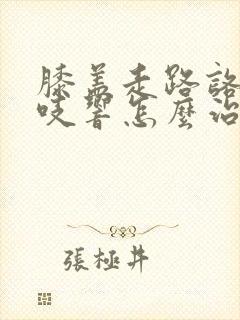 膝蓋走路咯
吱響怎麼治
張極井